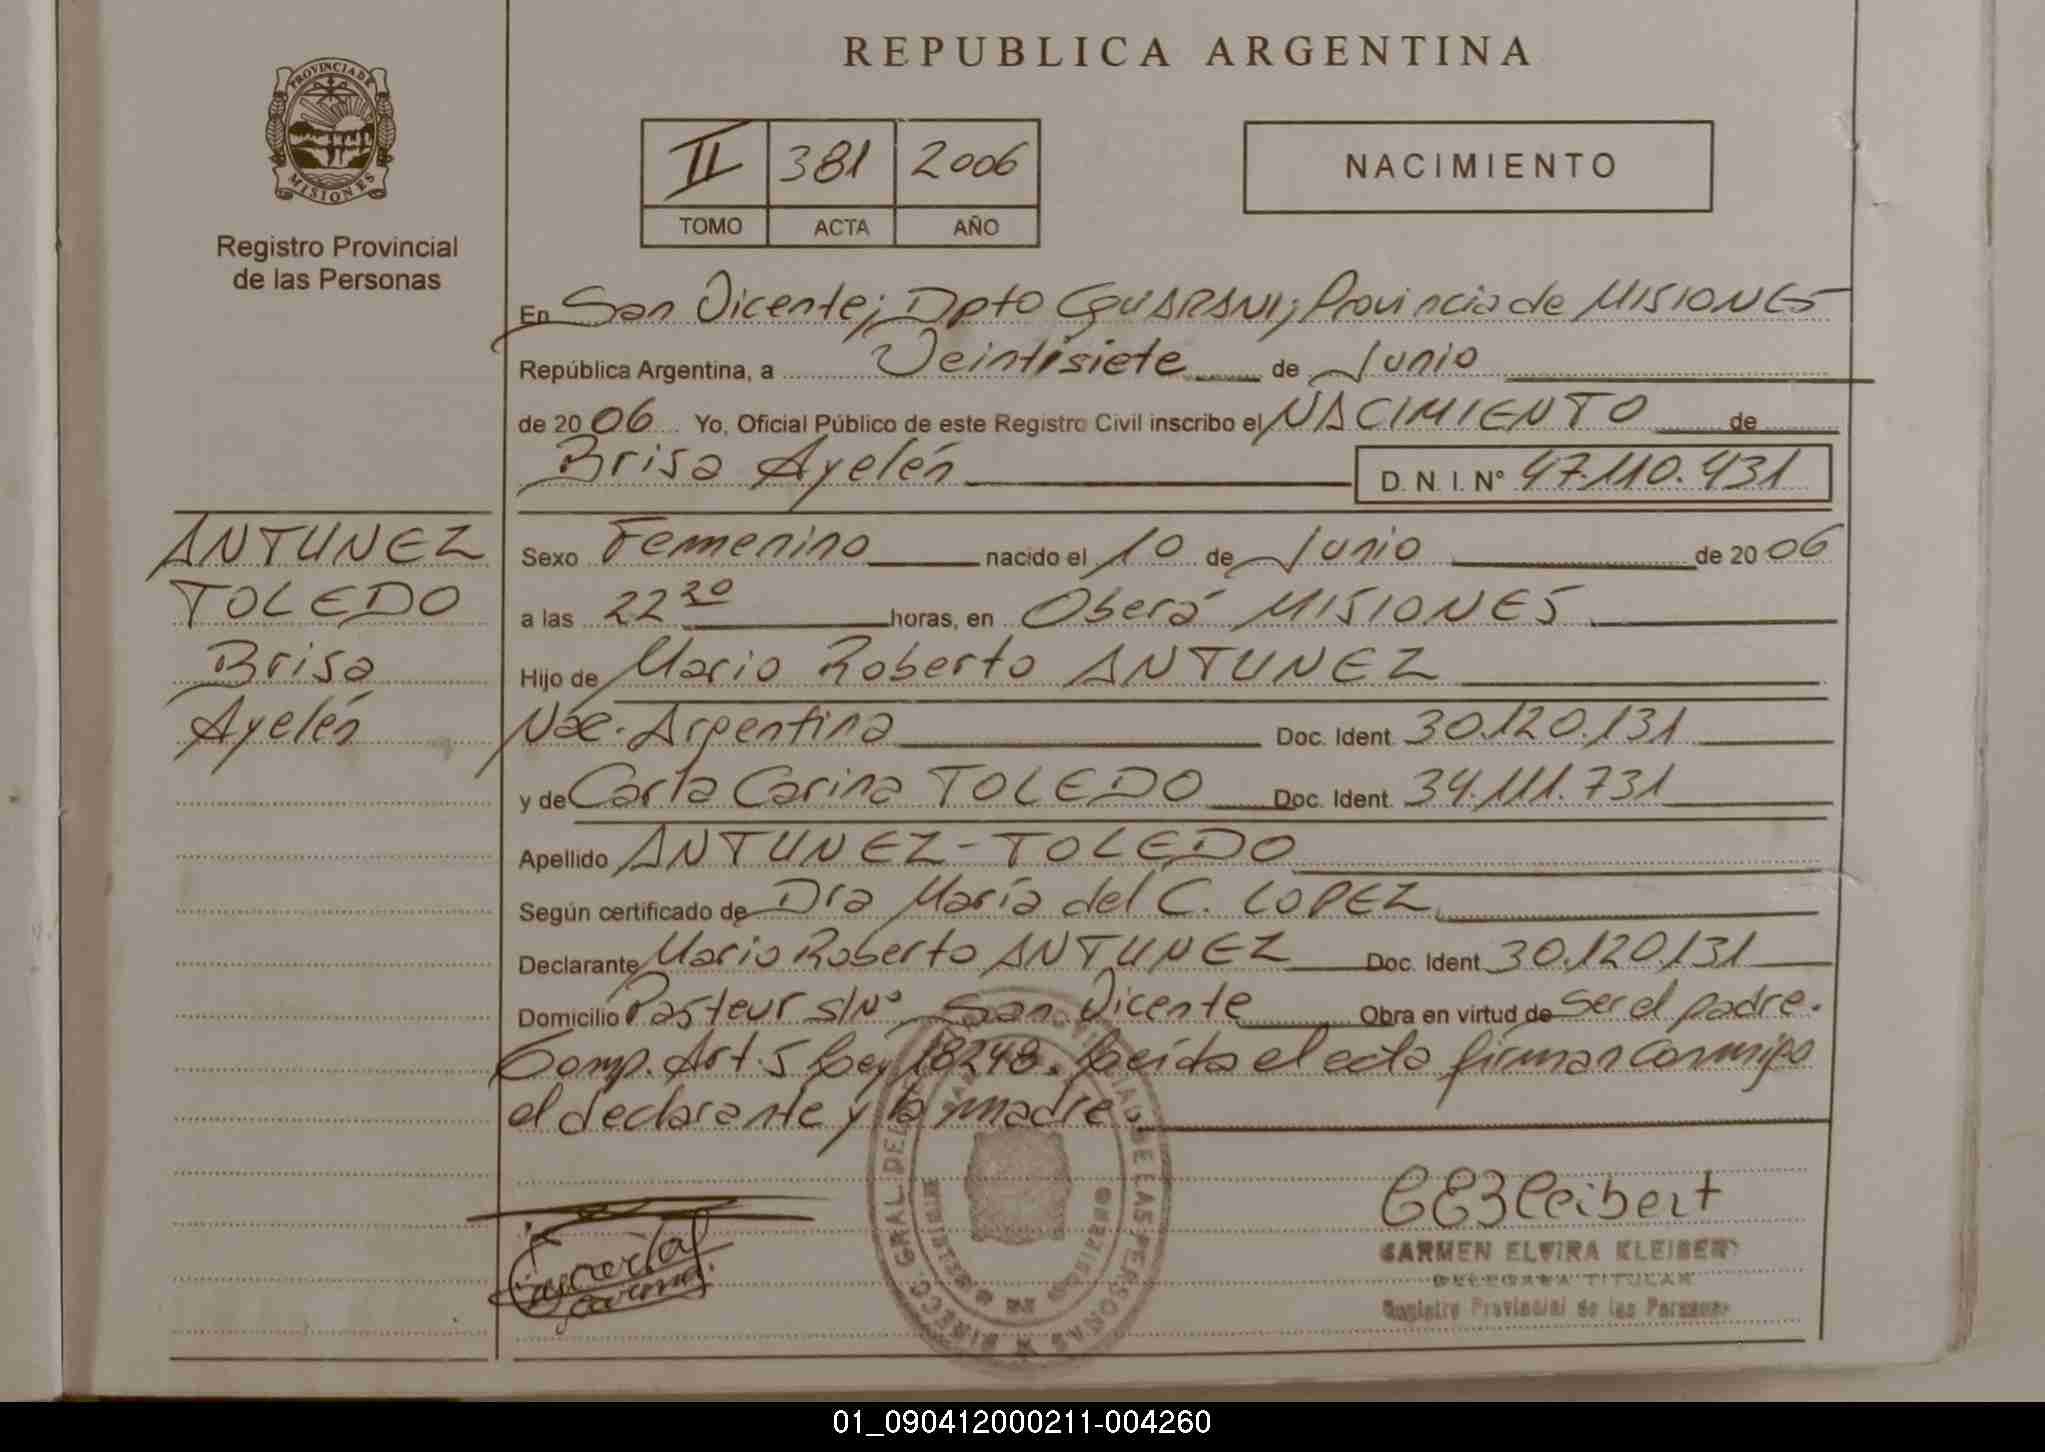 REPUBLICA ARGENTINA
PROVINCIA DE
MISIONES
Registro Provincial
de las Personas
II 381 2006
TOMO ACTA AÑO
NACIMIENTO
En San Vicente; Dpto GUARANI; Provincia de MISIONES
República Argentina, a Veintisiete de Junio
de 2006 Yo, Oficial Público de este Registro Civil inscribo el NACIMIENTO de
Brisa Ayelén D. N. I. N° 47.110.431
ANTUNEZ
TOLEDO
Brisa
Ayelén
Sexo Femenino nacido el 10 de Junio de 2006
a las 22 20 horas, en Oberá MISIONES
Hijo de Mario Roberto ANTUNEZ
Nac. Argentina Doc. Ident. 30.120.131
y de Carla Carina TOLEDO Doc. Ident. 34.111.731
Apellido ANTUNEZ-TOLEDO
Según certificado de Dra María del C. LOPEZ
Declarante Mario Roberto ANTUNEZ Doc. Ident 30.120.131
Domicilio Pasteur s/N° San Vicente Obra en virtud de ser el padre.
Comp. Art. 5 Ley 18248. Leída el acta firman conmigo
el declarante y la madre.
CEKleibert
CARMEN ELVIRA KLEIBERT
DELEGADA TITULAR
Registro Provincial de las Personas
01_090412000211-004260